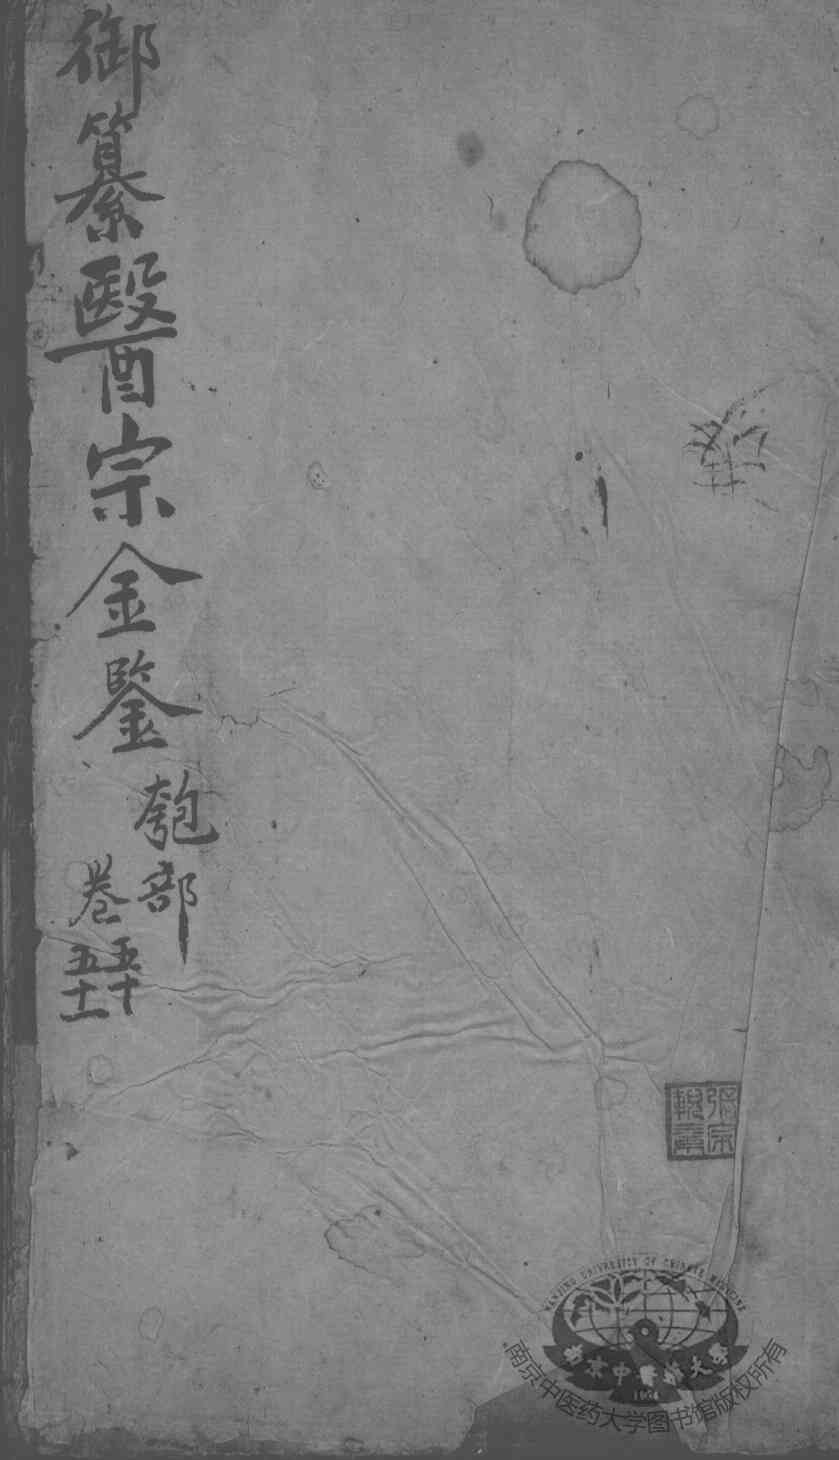 御纂醫宗金鑒
匏部
卷
五十
五十一
NANJING UNIVERSITY OF CHINESE MEDICINE
南京中醫药大学
1954
南京中医药大学图书馆版权所有